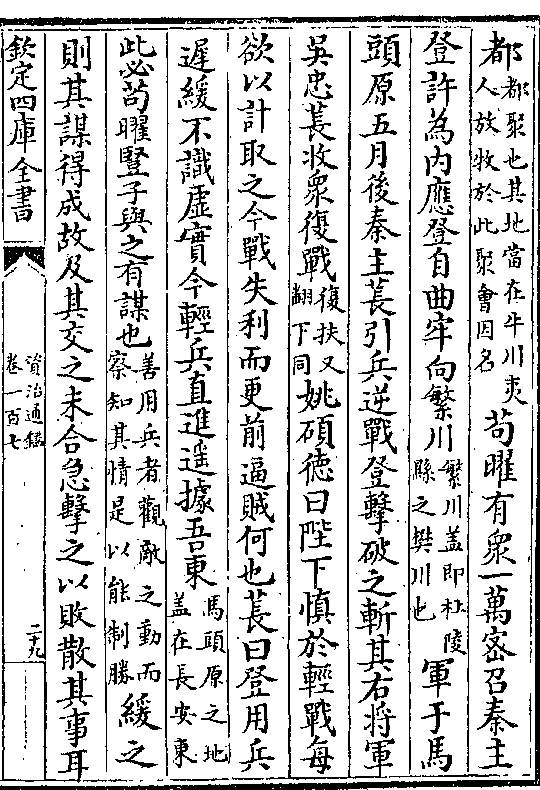 都都聚也其地當在牛川夷人放牧於此聚會因名苟曜有衆一萬宻召秦主
登許為内應登自曲牢向繁川繁川盖即杜陵縣之樊川也軍于馬
頭原五月後秦主萇引兵逆戰登擊破之斬其右将軍
吳忠萇收衆復戰復扶又翻下同姚碩德曰陛下慎於輕戰每
欲以計取之今戰失利而更前逼賊何也萇曰登用兵
遲緩不識虛實今輕兵直進遥據吾東馬頭原之地盖在長安東
此必苟曜豎子與之有謀也善用兵者觀敵之動而察知其情是以能制勝緩之
則其謀得成故及其交之未合急擊之以敗散其事耳
欽定四庫全書
資治通鑑
卷一百七
二十九